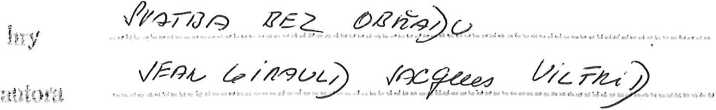 hry SVATBA BEZ OBŘADU
autora JEAN GIRAULD JACQUES VILFRID